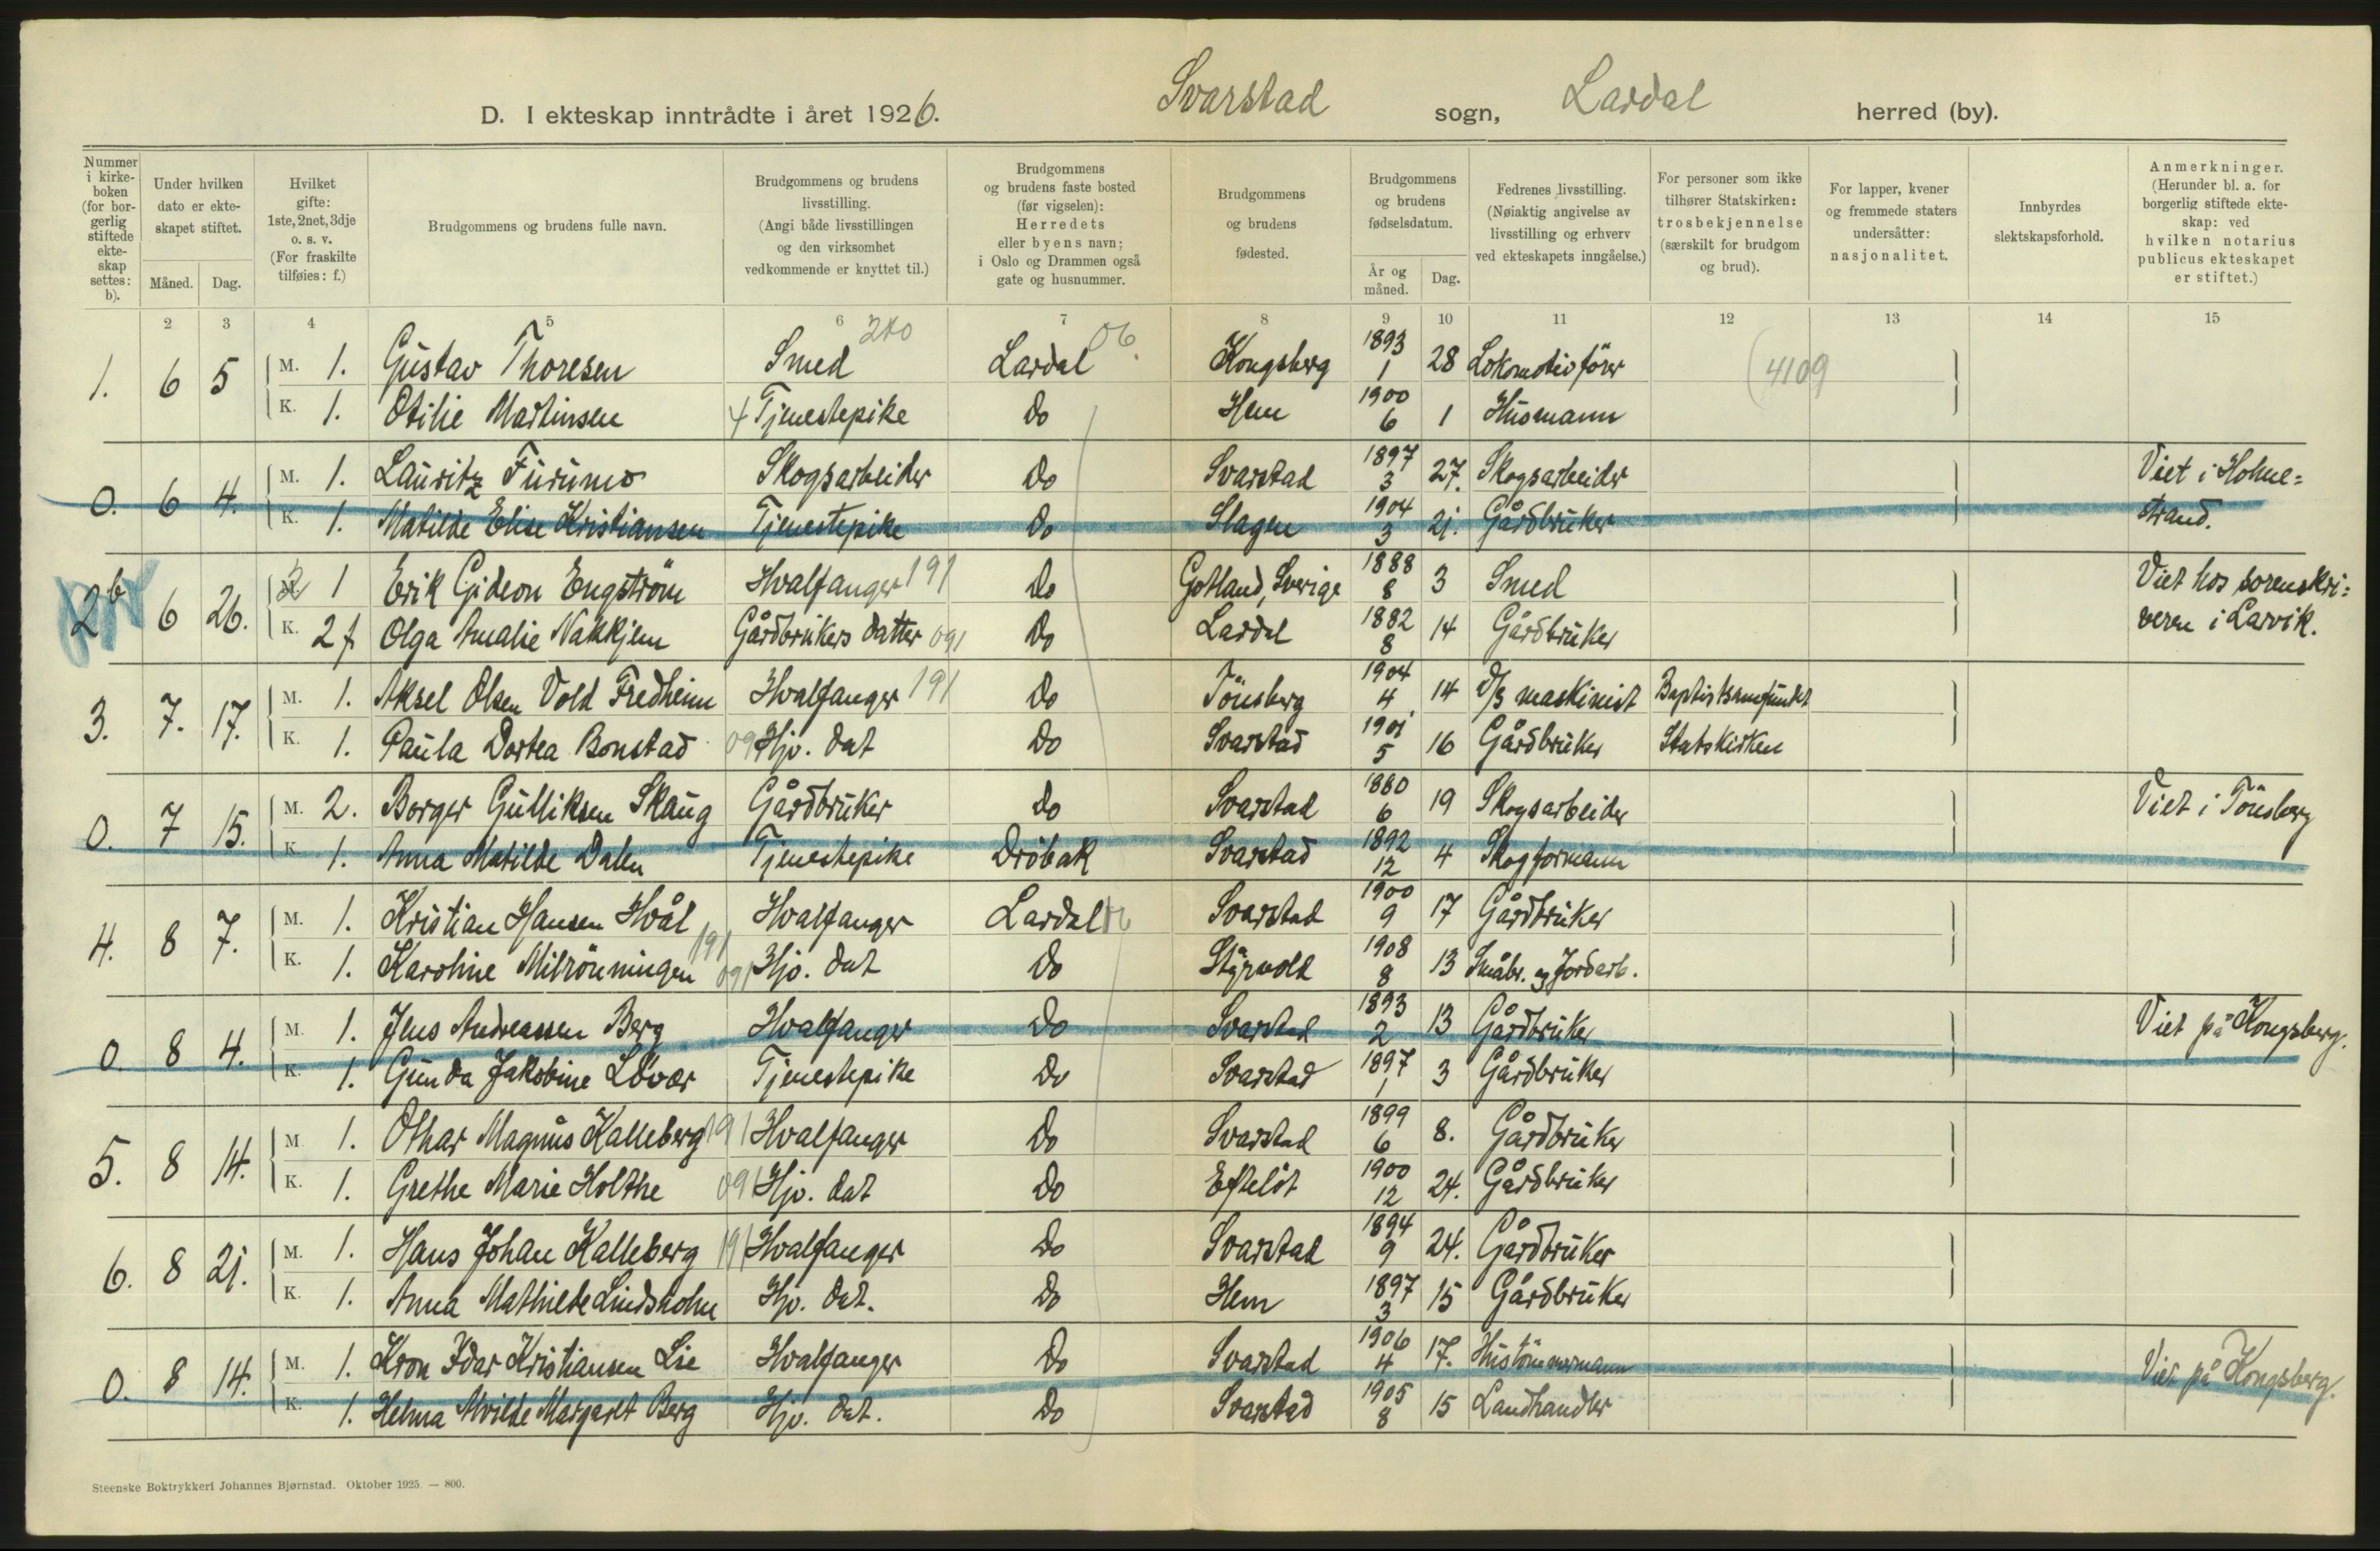 D. I ekteskap inntrådte i året 1926. Svarstad sogn, Lardal herred (by).
Nummer i kirke-boken (for bor-gerlig stiftede ekte-skap settes: b).
Under hvilken dato er ekte-skapet stiftet.
Måned. Dag.
Hvilket gifte: 1ste, 2net, 3dje o. s. v. (For fraskilte tilføies: f.)
Brudgommens og brudens fulle navn.
Brudgommens og brudens livsstilling. (Angi både livsstillingen og den virksomhet vedkommende er knyttet til.)
Brudgommens og brudens faste bosted (før vigselen): Herredets eller byens navn; i Oslo og Drammen også gate og husnummer.
Brudgommens og brudens fødested.
Brudgommens og brudens fødselsdatum.
År og måned. Dag.
Fedrenes livsstilling. (Nøiaktig angivelse av livsstilling og erhverv ved ekteskapets inngåelse.)
For personer som ikke tilhører Statskirken: trosbekjennelse (særskilt for brudgom og brud).
For lapper, kvener og fremmede staters undersåtter: nasjonalitet.
Innbyrdes slektskapsforhold.
Anmerkninger. (Herunder bl. a. for borgerlig stiftede ekte-skap: ved hvilken notarius publicus ekteskapet er stiftet.)
2 3 4 5 6 7 8 9 10 11 12 13 14 15
1. 6 5 M. 1. Gustav Thoresen Smed 240 Lardal 06 Kongsberg 1893 1 28 Lokomotivförer (4109
K. 1. Otilie Martinsen 4 Tjenestepike Do Hem 1900 6 1 Husmann
0. 6 4. M. 1. Lauritz Furumo Skogsarbeider Do Svarstad 1897 3 27. Skogsarbeider Viet i Holme=
K. 1. Matilde Elise Kristiansen Tjenestepike Do Slagen 1904 3 21. Gårdbruker strand.
2b 6 26. M. 1 Erik Gideon Engström Hvalfanger 191 Do Gotland, Sverige 1888 8 3 Smed Viet hos sorenskri=
K. 2 f Olga Amalie Nakkjem Gårdbrukers datter 091 Do Lardal 1882 8 14 Gårdbruker veren i Larvik.
3. 7. 17. M. 1. Aksel Olsen Vold Fredheim Hvalfanger 191 Do Tönsberg 1904 4 14 d/s maskinist Baptistsamfundet
K. 1. Paula Dortea Bonstad 09 Hjv. dat Do Svarstad 1901 5 16 Gårdbruker Statskirken
0. 7 15. M. 2. Borger Gulliksen Skaug Gårdbruker Do Svarstad 1880 6 19 Skogsarbeider Viet i Tönsberg
K. 1. Anna Matilde Dalen Tjenestepike Dröbak Svarstad 1892 12 4 Skogformann
4. 8 7. M. 1. Kristian Hansen Hvål 191 Hvalfanger Lardal 06 Svarstad 1900 9 17 Gårdbruker
K. 1. Karoline Milrönningen 091 Hjv. dat Do Styrvold 1908 8 13 Småbr. og Jordarb.
0. 8 4. M. 1. Jens Andreassen Berg Hvalfanger Do Svarstad 1893 2 13 Gårdbruker Viet på Kongsberg.
K. 1. Gunda Jakobine Lövås Tjenestepike Do Svarstad 1897 1 3 Gårdbruker
5. 8 14. M. 1. Othar Magnus Kalleberg 191 Hvalfanger Do Svarstad 1899 6 8. Gårdbruker
K. 1. Grethe Marie Holthe 091 Hjv. dat Do Efteløt 1900 12 24. Gårdbruker
6. 8 21. M. 1. Hans Johan Kalleberg 191 Hvalfanger Do Svarstad 1894 9 24. Gårdbruker
K. 1. Anna Mathilde Lindsholm Hjv. dat. Do Hem 1897 3 15 Gårdbruker
0. 8 14. M. 1. Kron Idar Kristiansen Lie Hvalfanger Do Svarstad 1906 4 17. Hustömmermann Viet på Kongsberg.
K. 1. Helma Margaret Berg Hjv. dat. Do Svarstad 1905 8 15 Landhandler
Steenske Boktrykkeri Johannes Bjørnstad. Oktober 1925. — 800.